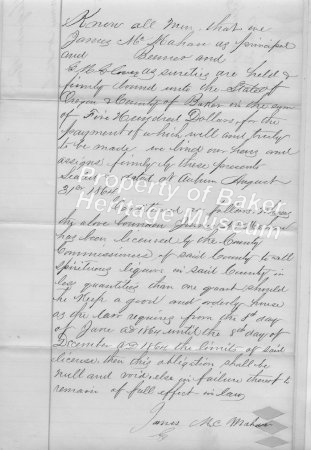 Know all men, that we
James Mc Mahan as principal
and Beemer and
as sureties are held &
firmly bound unto the State of
Oregon & County of Baker in the sum
of Five Hundred Dollars, for the
payment of which well and truly
to be made we bind our heirs and
assigns firmly by these presents
Sealed dated at Auburn August
31st 1864
Property of Baker
Heritage Museum
as follows, whereas
the above bounden James
has been licensed by the County
Commissioners of said County to sell
spirituous liquors in said County in
less quantities than one quart should
he keep a good and orderly house
as the law requires from the 8th day
of June AD 1864 until the 8th day of
December AD 1864 the limits of said
license, then this obligation shall be
null and void, else on failure thereof to
remain of full effect in law
James Mc Mahan